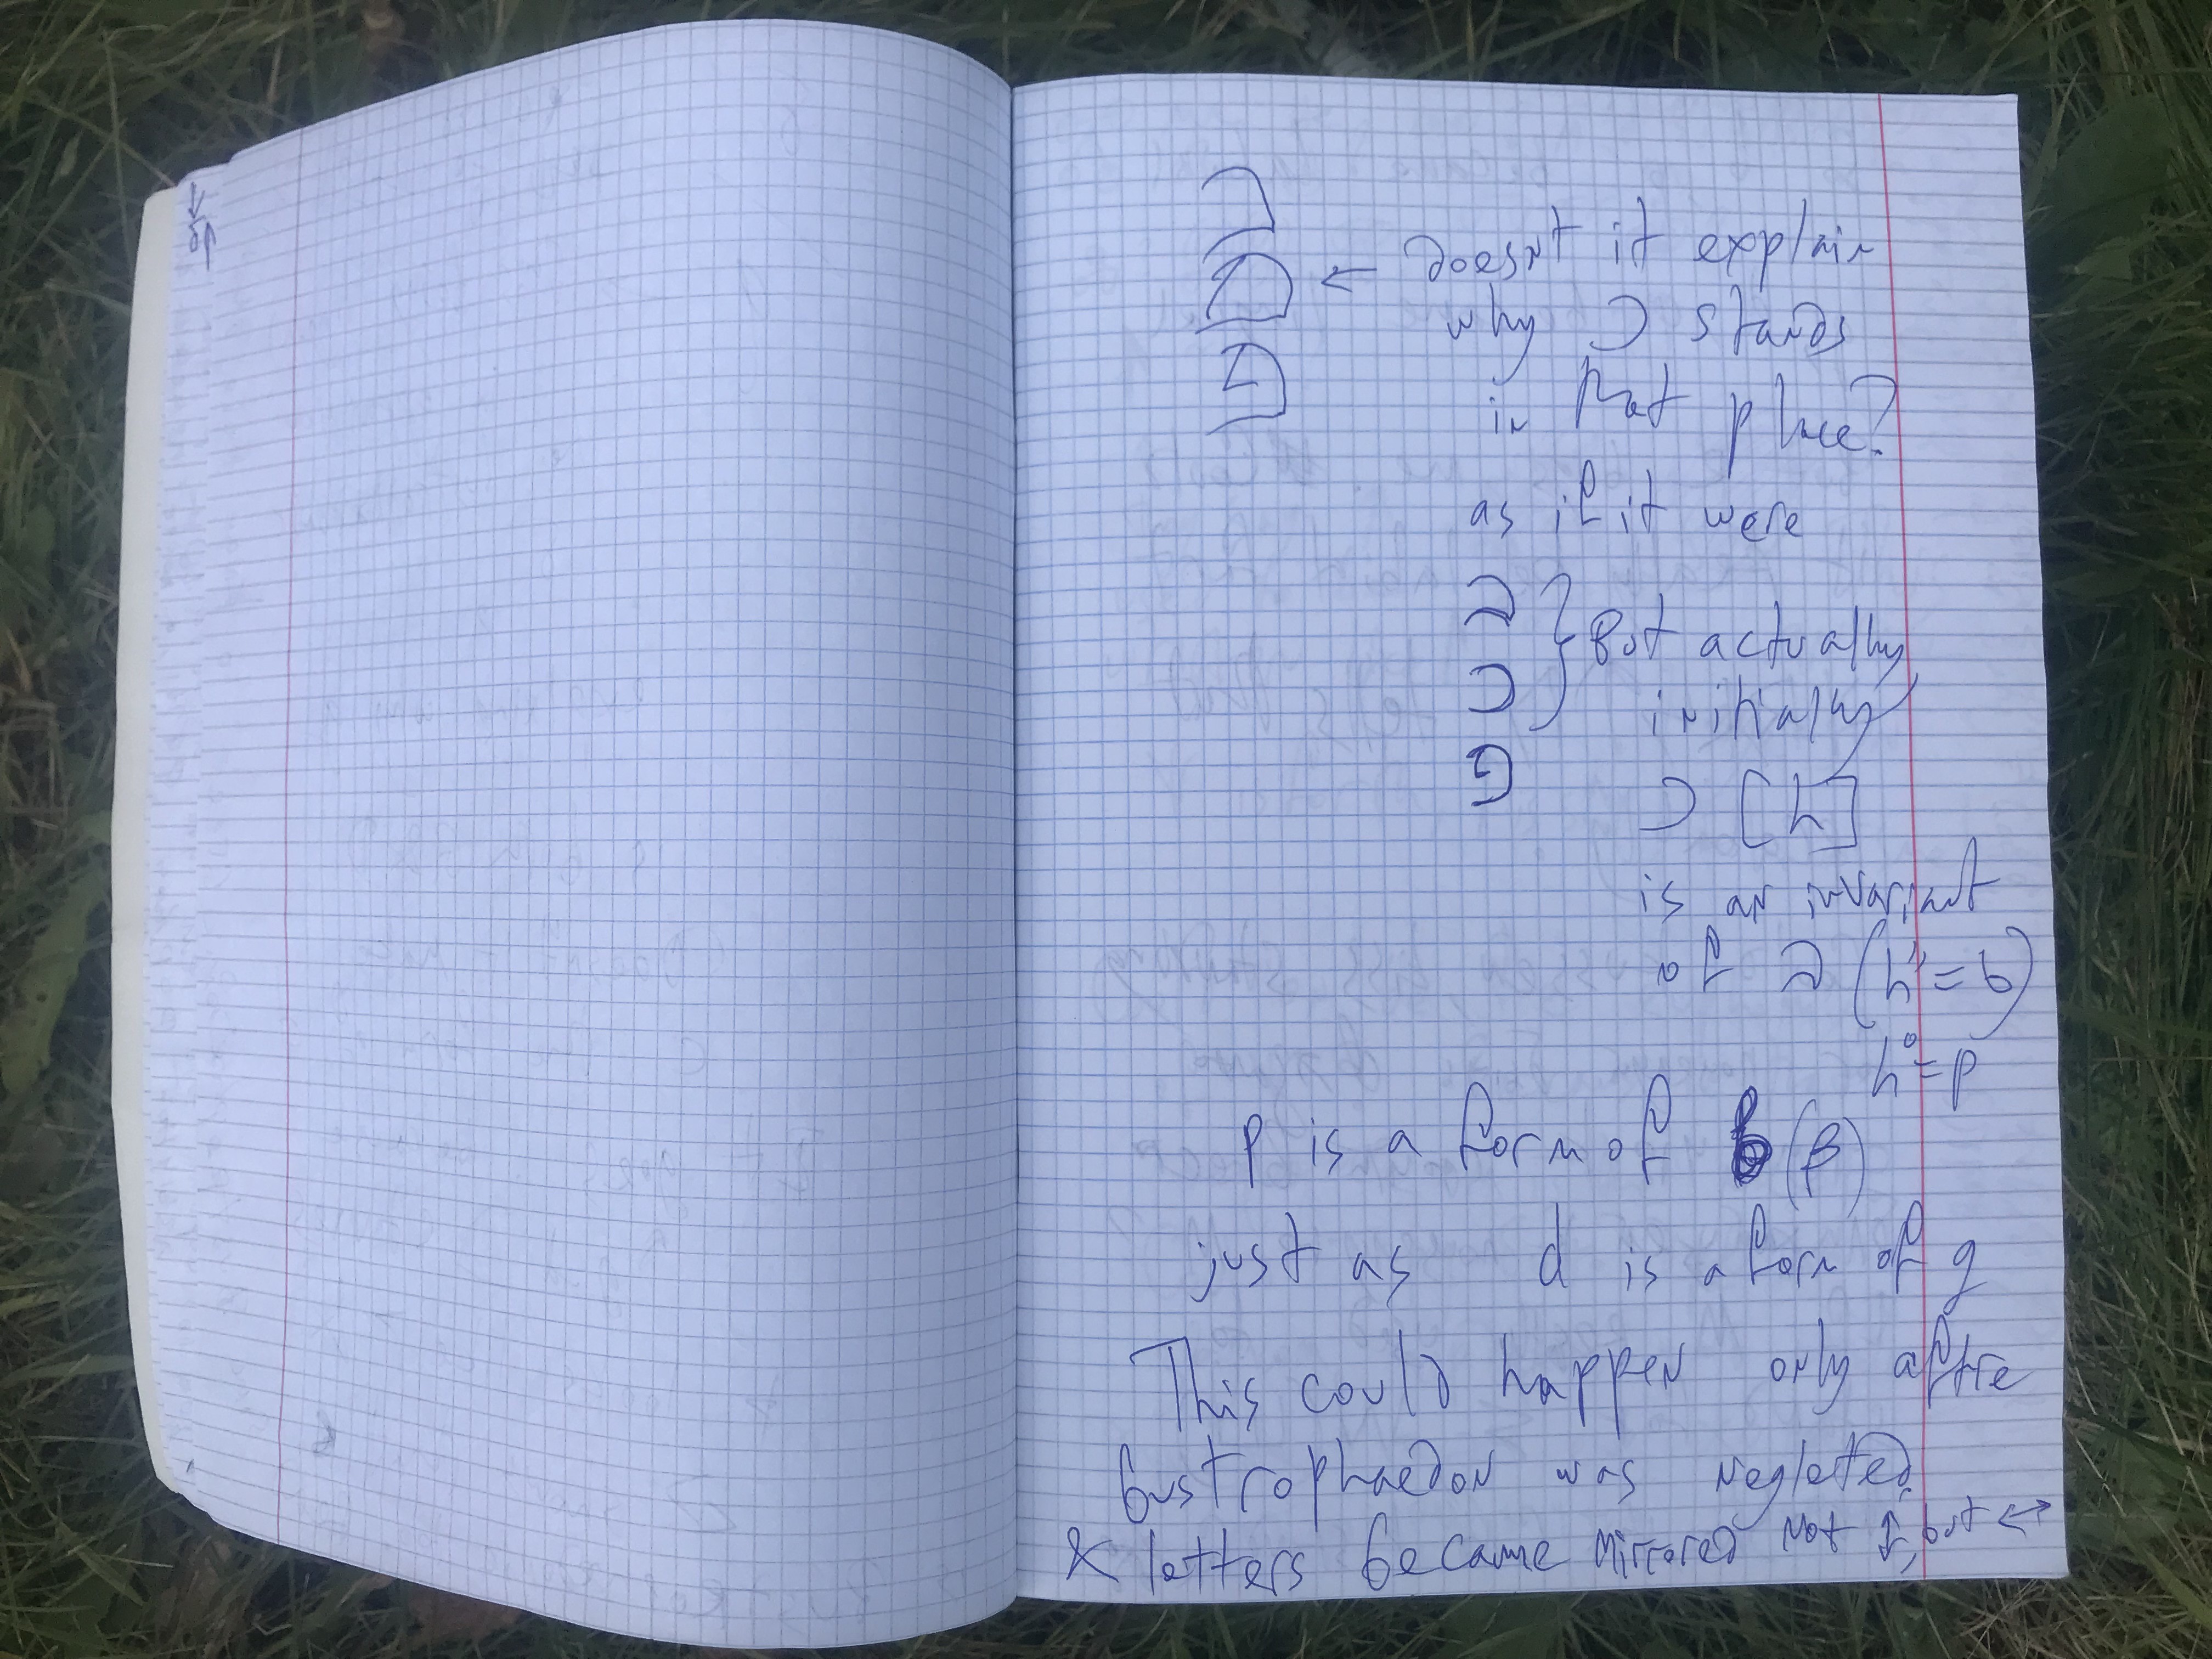 ← doesnt it explain
why Ɔ stands
in that place?
as if it were
ꙅ
C } But actually
G initially
C [h]
is an invariant
of ꙅ (h"=6)
h°=p
p is a form of (B)
just as d is a form of q
This coulD happen only aftre
bustrophaedon was neglected
& letters became mirrored not ↕, but ↔